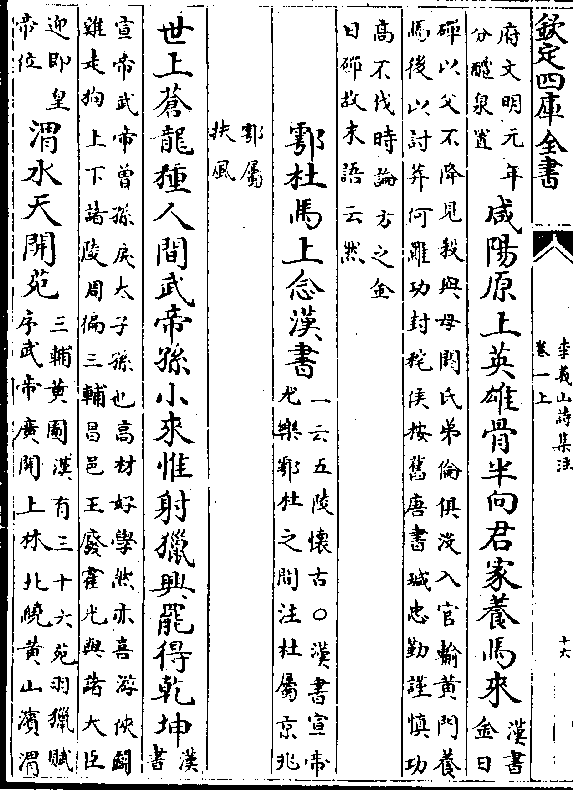 欽定四庫全書
李義山詩集注
卷一上
十六
府文明元年
分醴泉置
咸陽原上英雄骨半向君家養馬來
漢書
金日
磾以父不降見殺與母閼氏弟倫俱沒入官輸黃門養
馬後以討莽何羅功封秺侯按舊唐書瑊忠勤謹慎功
高不伐時論方之金
日磾故末語云然
鄠杜馬上念漢書
一云五陵懷古〇漢書宣帝
尤樂鄠杜之間注杜屬京兆
鄠屬
扶風
世上蒼龍種人間武帝孫小來惟射獵興罷得乾坤
漢
書
宣帝武帝曾孫戾太子孫也高材好學然亦喜游俠鬭
雞走狗上下諸陵周徧三輔昌邑王廢霍光與諸大臣
迎即皇
帝位
渭水天開苑
三輔黃圖漢有三十六苑羽獵賦
序武帝廣開上林北繞黃山濱渭